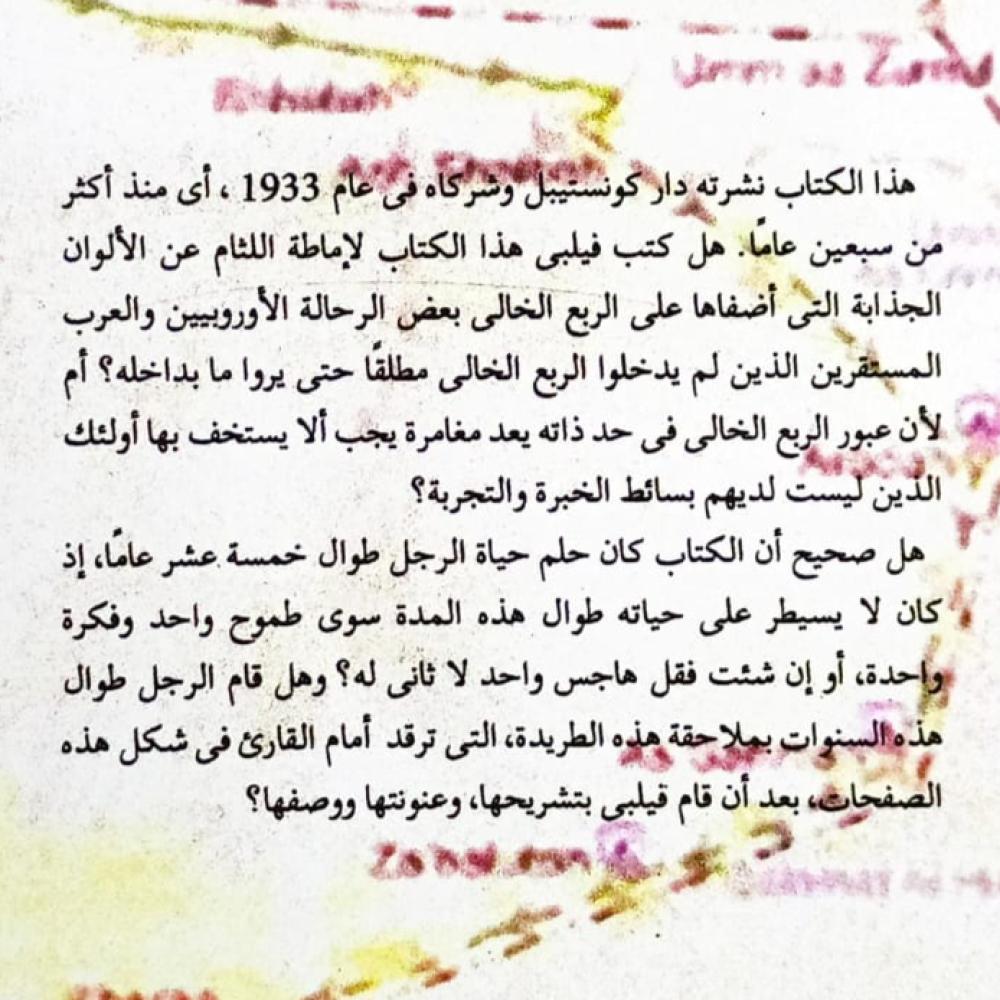 هذا الكتاب نشرته دار كونستيبل وشركاه فى عام 1933 ، أى منذ أكثر
من سبعين عامًا. هل كتب فيلبى هذا الكتاب لإماطة اللثام عن الألوان
الجذابة التى أضفاها على الربع الخالى بعض الرحالة الأوروبيين والعرب
المستقرين الذين لم يدخلوا الربع الخالى مطلقًا حتى يروا ما بداخله؟ أم
لأن عبور الربع الخالى فى حد ذاته يعد مغامرة يجب ألا يستخف بها أولئك
الذين ليست لديهم بسائط الخبرة والتجربة؟
هل صحيح أن الكتاب كان حلم حياة الرجل طوال خمسة عشر عامًا، إذ
كان لا يسيطر على حياته طوال هذه المدة سوى طموح واحد وفكرة
واحدة، أو إن شئت فقل هاجس واحد لا ثانى له؟ وهل قام الرجل طوال
هذه السنوات بملاحقة هذه الطريدة، التى ترقد أمام القارئ فى شكل هذه
الصفحات، بعد أن قام ڤيلبى بتشريحها، وعنونتها ووصفها؟